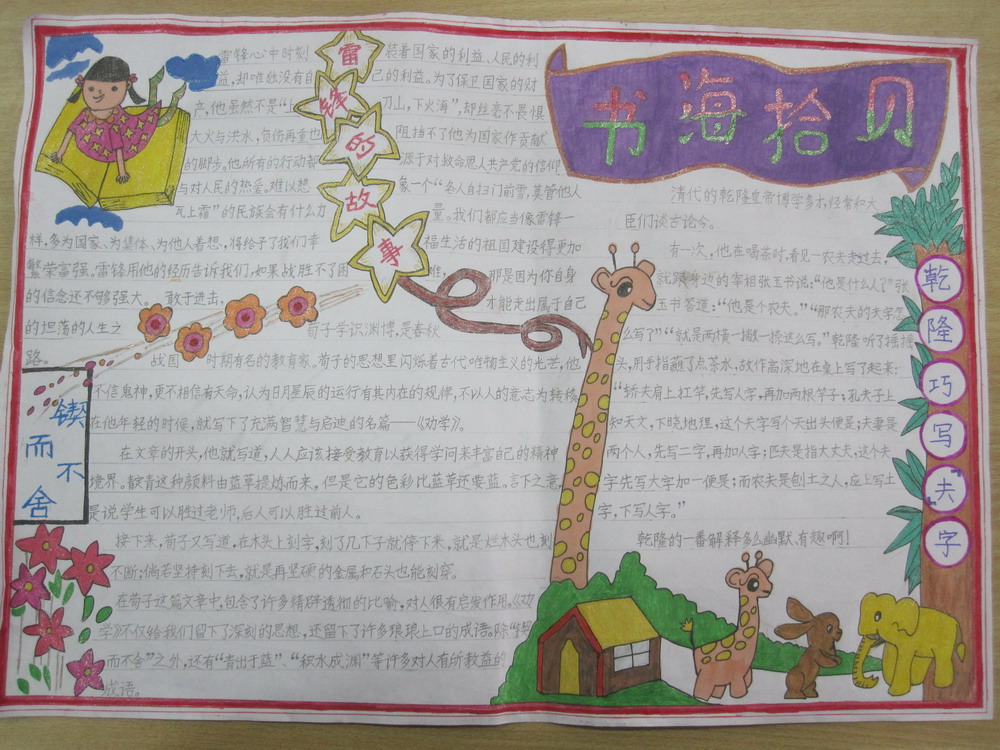 书海拾贝
雷锋的故事
雷锋心中时刻装着国家的利益、人民的利
益,却唯独没有自己的利益。为了保卫国家的财
产,他虽然不是“上刀山,下火海”,却丝毫不畏惧
大火与洪水,负伤再重也阻挡不了他为国家作贡献
的脚步。他所有的行动都源于对致命恩人共产党的信仰
与对人民的热爱。难以想象一个“各人自扫门前雪,莫管他人
瓦上霜”的民族会有什么力量。我们都应当像雷锋一
样,多为国家、为集体、为他人着想,将给予了我们幸福生活的祖国建设得更加
繁荣富强。雷锋用他的经历告诉我们,如果战胜不了困难,那是因为你自身
的信念还不够强大。敢于进击,才能走出属于自己
的坦荡的人生之
路。
锲而不舍
荀子学识渊博,是春秋
战国时期有名的教育家。荀子的思想里闪烁着古代唯物主义的光芒,他
不信鬼神,更不相信有天命,认为日月星辰的运行有其内在的规律,不以人的意志为转移
在他年轻的时候,就写下了充满智慧与启迪的名篇——《劝学》。
在文章的开头,他就写道,人人应该接受教育以获得学问来丰富自己的精神
境界。靛青这种颜料由蓝草提炼而来,但是它的色彩比蓝草还要蓝。言下之意,
是说学生可以胜过老师,后人可以胜过前人。
接下来,荀子又写道,在木头上刻字,刻了几下子就停下来,就是烂木头也刻
不断;倘若坚持刻下去,就是再坚硬的金属和石头也能刻穿。
在荀子这篇文章中,包含了许多精辟透彻的比喻,对人很有启发作用。《劝
学》不仅给我们留下了深刻的思想,还留下了许多琅琅上口的成语。除“锲
而不舍”之外,还有“青出于蓝”、“积水成渊”等许多对人有所教益的
成语。
乾隆巧写“夫”字
清代的乾隆皇帝博学多才,经常和大
臣们谈古论今。
有一次,他在喝茶时,看见一农夫走过去,
就跟身边的宰相张玉书说:“他是什么人?”张
玉书答道:“他是个农夫。”“那农夫的夫字怎
么写?”“就是两横一撇一捺这么写。”乾隆听了摇摇
头,用手指蘸了点茶水,故作高深地在桌上写了起来:
“轿夫肩上扛竿,先写人字,再加两根竿子;孔夫子上
知天文,下晓地理,这个夫字写个天出头便是;夫妻是
两个人,先写二字,再加人字;匹夫是指大丈夫,这个夫
字先写大字加一便是;而农夫是刨土之人,应上写土
字,下写人字。”
乾隆的一番解释多么幽默、有趣啊!